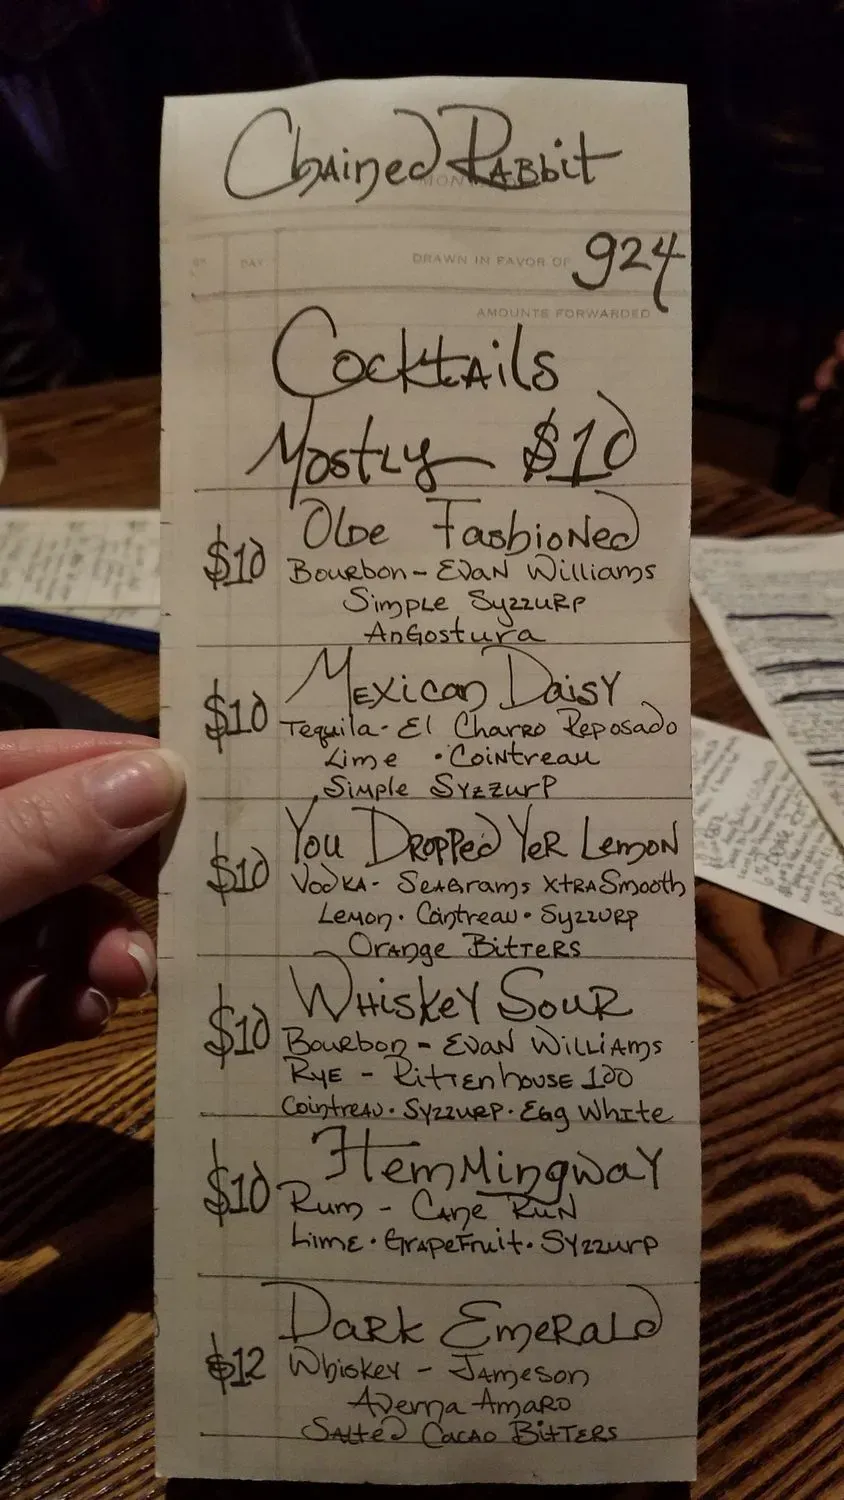 Chained Rabbit
MON
DAY DRAWN IN FAVOR OF 924
AMOUNTS FORWARDED
Cocktails
Mostly $10
$10 Olde Fashioned
Bourbon - Evan Williams
Simple Syzzurp
Angostura
$10 Mexican Daisy
Tequila - El Charro Reposado
Lime · Cointreau
Simple Syzzurp
$10 You Dropped Yer Lemon
Vodka - Seagrams XtraSmooth
Lemon · Cointreau · Syzzurp
Orange Bitters
$10 Whiskey Sour
Bourbon - Evan Williams
Rye - Rittenhouse 100
Cointreau · Syzzurp · Egg White
$10 Hemmingway
Rum - Cane Run
Lime · Grapefruit · Syzzurp
$12 Dark Emerald
Whiskey - Jameson
Averna Amaro
Salted Cacao Bitters